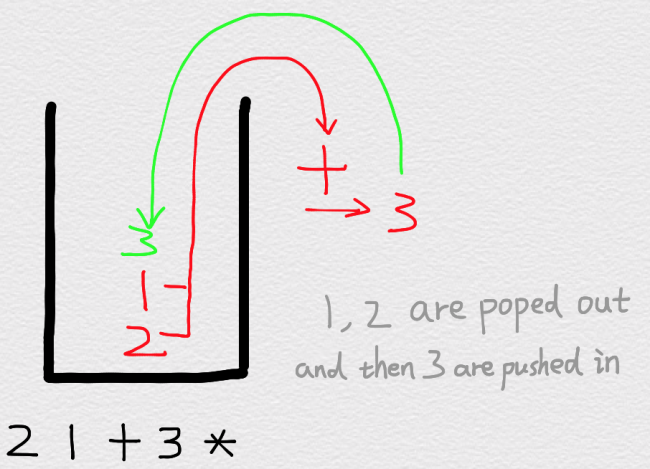 +
3
3
1
2
1, 2 are poped out
and then 3 are pushed in
2 1 + 3 *